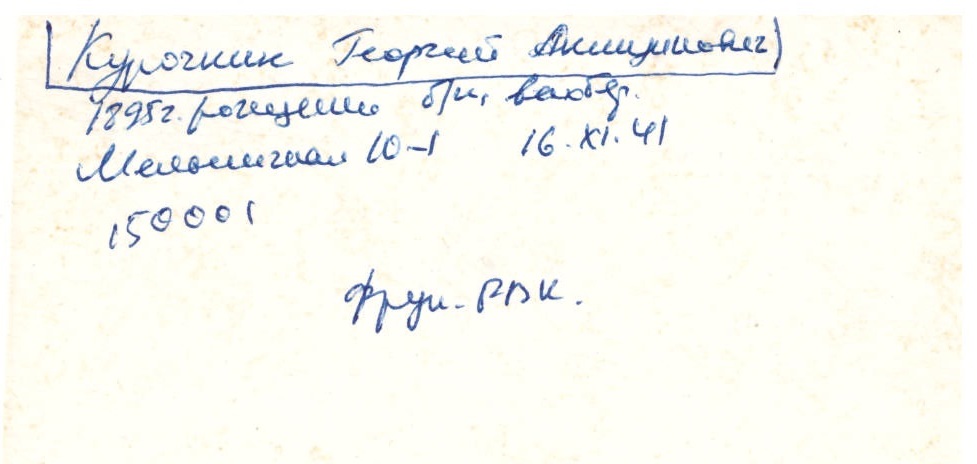 Курочкин Георгий
1895г. рождения б/п,
Мельничная 10-1 16.XI.41
150001
Фрун. РВК.